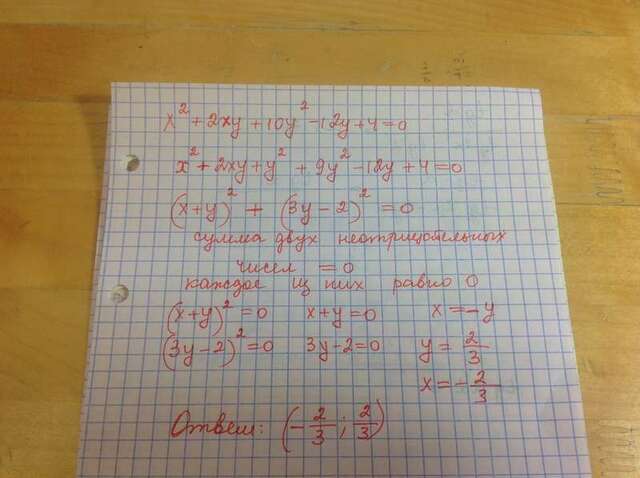 x² + 2xy + 10y² - 12y + 4 = 0
x² + 2xy + y² + 9y² - 12y + 4 = 0
(x+y)² + (3y-2)² = 0
сумма двух неотрицательных
чисел = 0
каждое из них равно 0
(x+y)² = 0 x+y=0 x=-y
(3y-2)² = 0 3y-2=0 y = 2/3
x = -2/3
Ответ: (-2/3; 2/3)